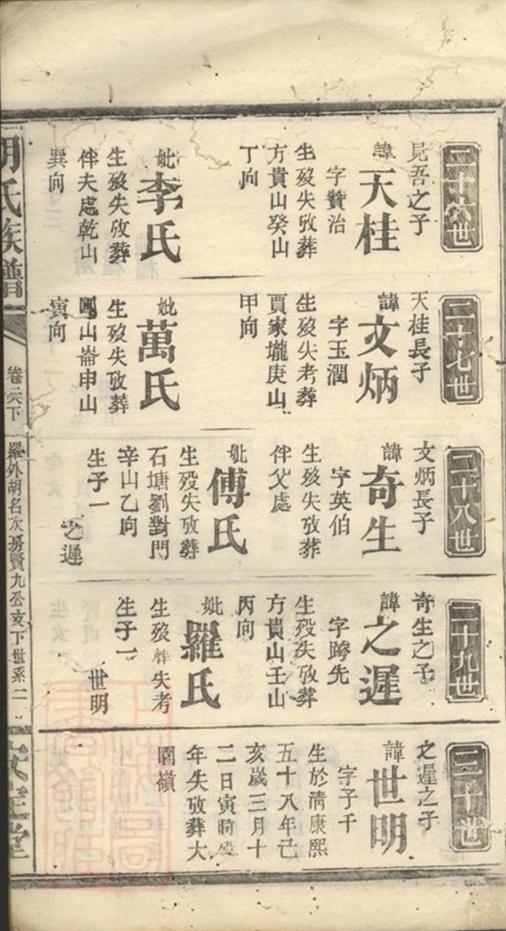 二十六世
見吾之子
諱天桂
字贊治
生殁失攷葬
方貴山癸山
丁向
妣李氏
生殁失攷葬
伴夫處乾山
巽向
二十七世
天桂長子
諱文炳
字玉潤
生殁失考葬
賈家壠庚山
甲向
妣萬氏
生殁失攷葬
山崙申山
寅向
二十八世
文炳長子
諱奇生
字英伯
生殁失攷葬
伴父處
妣傅氏
生殁失攷葬
石塘劉對門
辛山乙向
生子一
之遲
二十九世
奇生之子
諱之遲
字跨先
生殁失攷葬
方貴山壬山
丙向
妣羅氏
生殁葬失考
生子一
世明
三十世
之遲之子
諱世明
字子千
生於清康熙
五十八年己
亥歲三月十
二日寅時殁
年失攷葬大
圍嶺
胡氏族譜
卷六下
羅外胡名次房賢九公支下世系二
安定堂